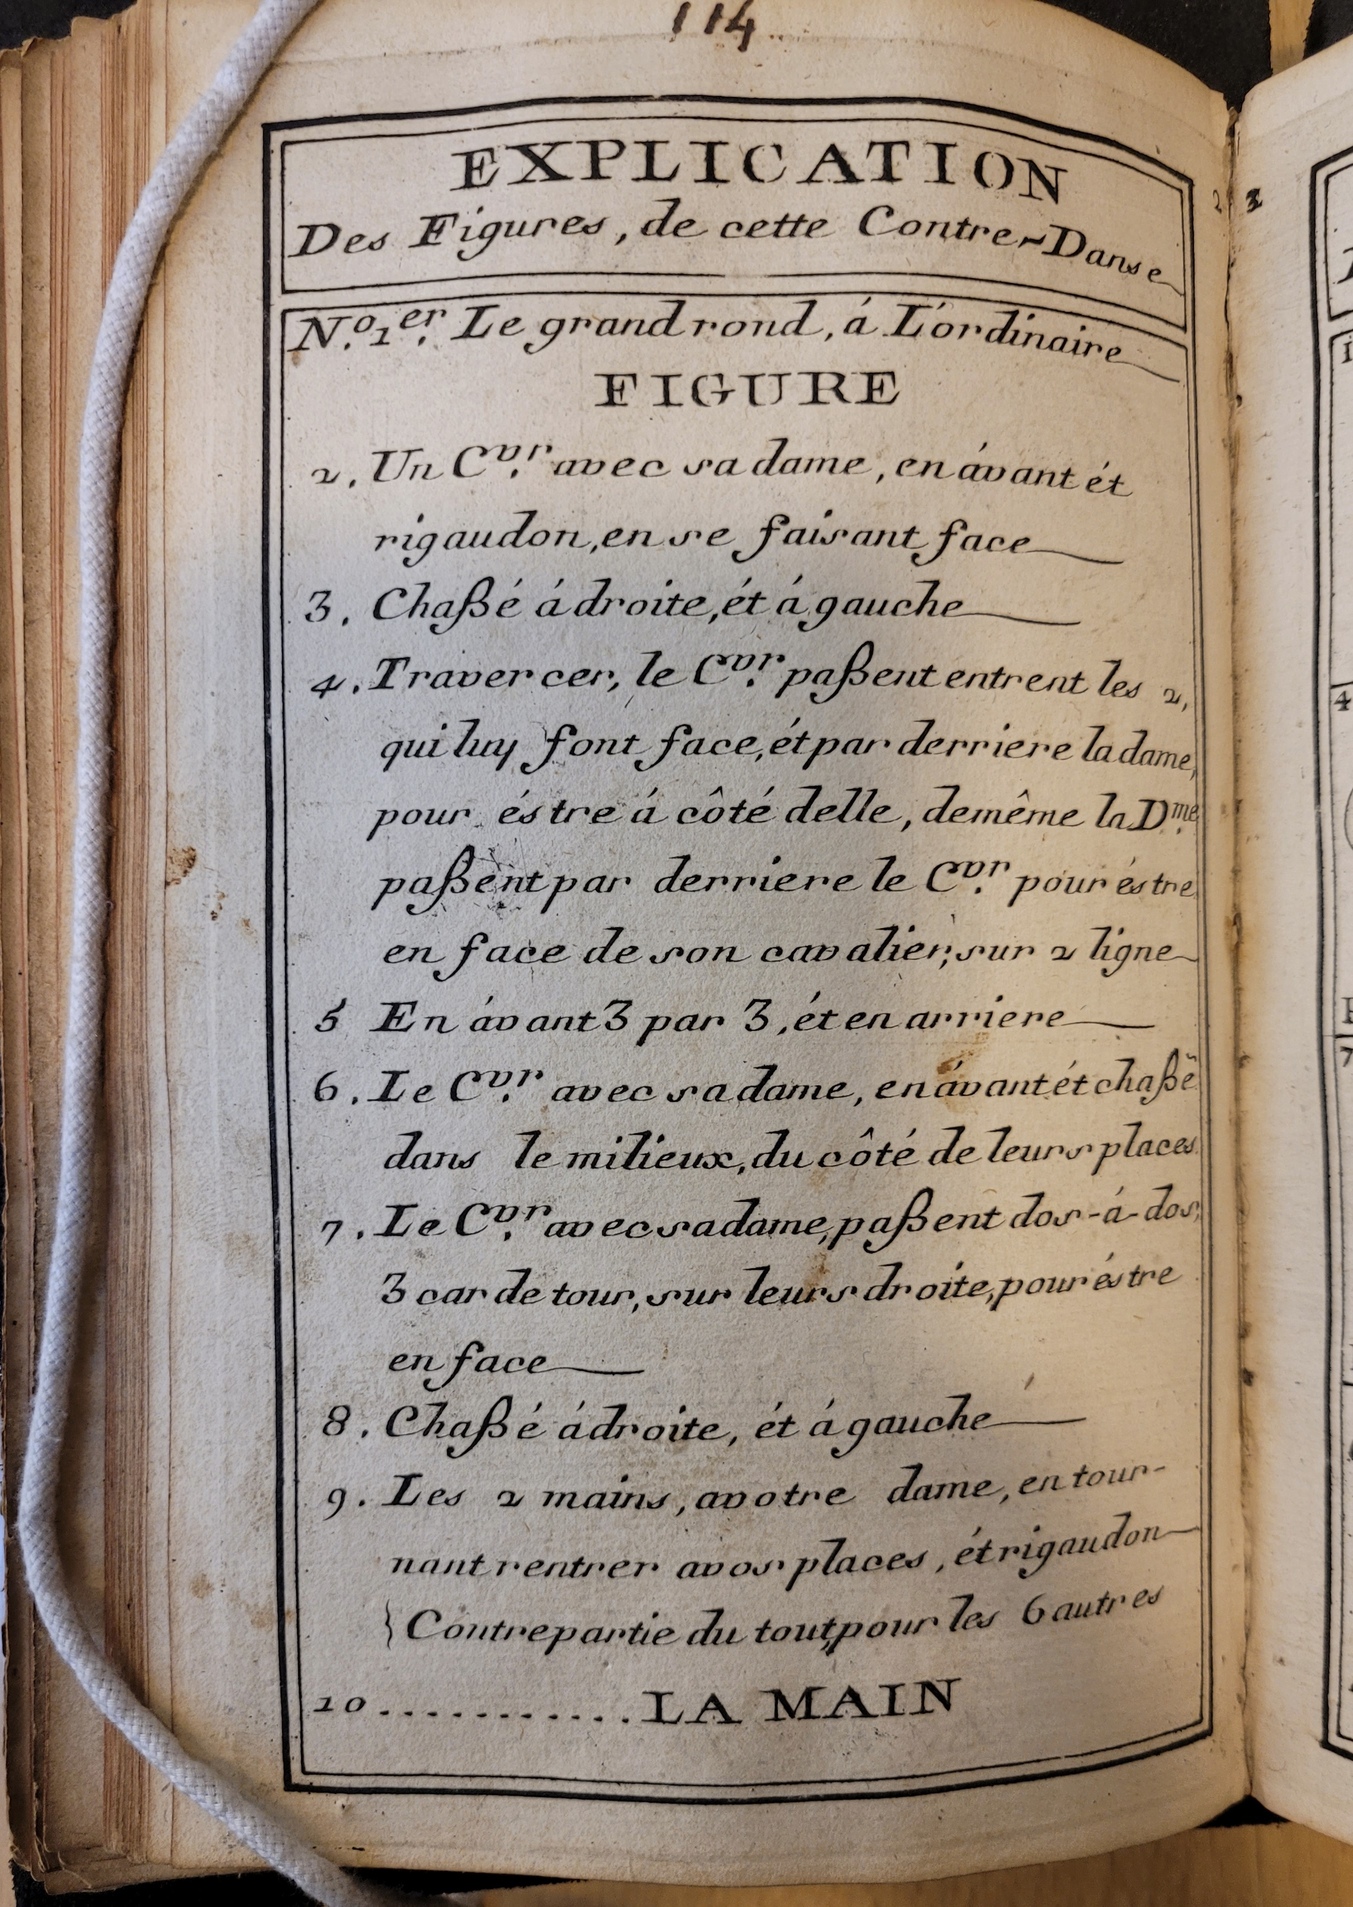 114
EXPLICATION
Des Figures, de cette Contre-Danse
N.º 1.er Le grand rond, á L'ordinaire
FIGURE
2. Un C.vr avec sa dame, en ávant ét
rigaudon, en se faisant face
3. Chaßé á droite, ét á gauche
4. Travercer, le C.vr paßent entrent les 2,
qui luy font face, ét par derriere la dame,
pour éstre á côté delle, demême la D.me
paßent par derriere le C.vr pour éstre
en face de son cavalier, sur 2 ligne
5 En ávant 3 par 3, ét en arriere
6. Le C.vr avec sa dame, en ávant ét chaßé
dans le milieux, du côté de leurs places
7. Le C.vr avec sa dame, paßent dos-á-dos,
3 car de tour, sur leurs droite, pour éstre
en face
8. Chaßé á droite, ét á gauche
9. Les 2 mains, avotre dame, en tour-
nant rentrer avos places, ét rigaudon
} Contrepartie du tout, pour les 6 autres
10 ........... LA MAIN